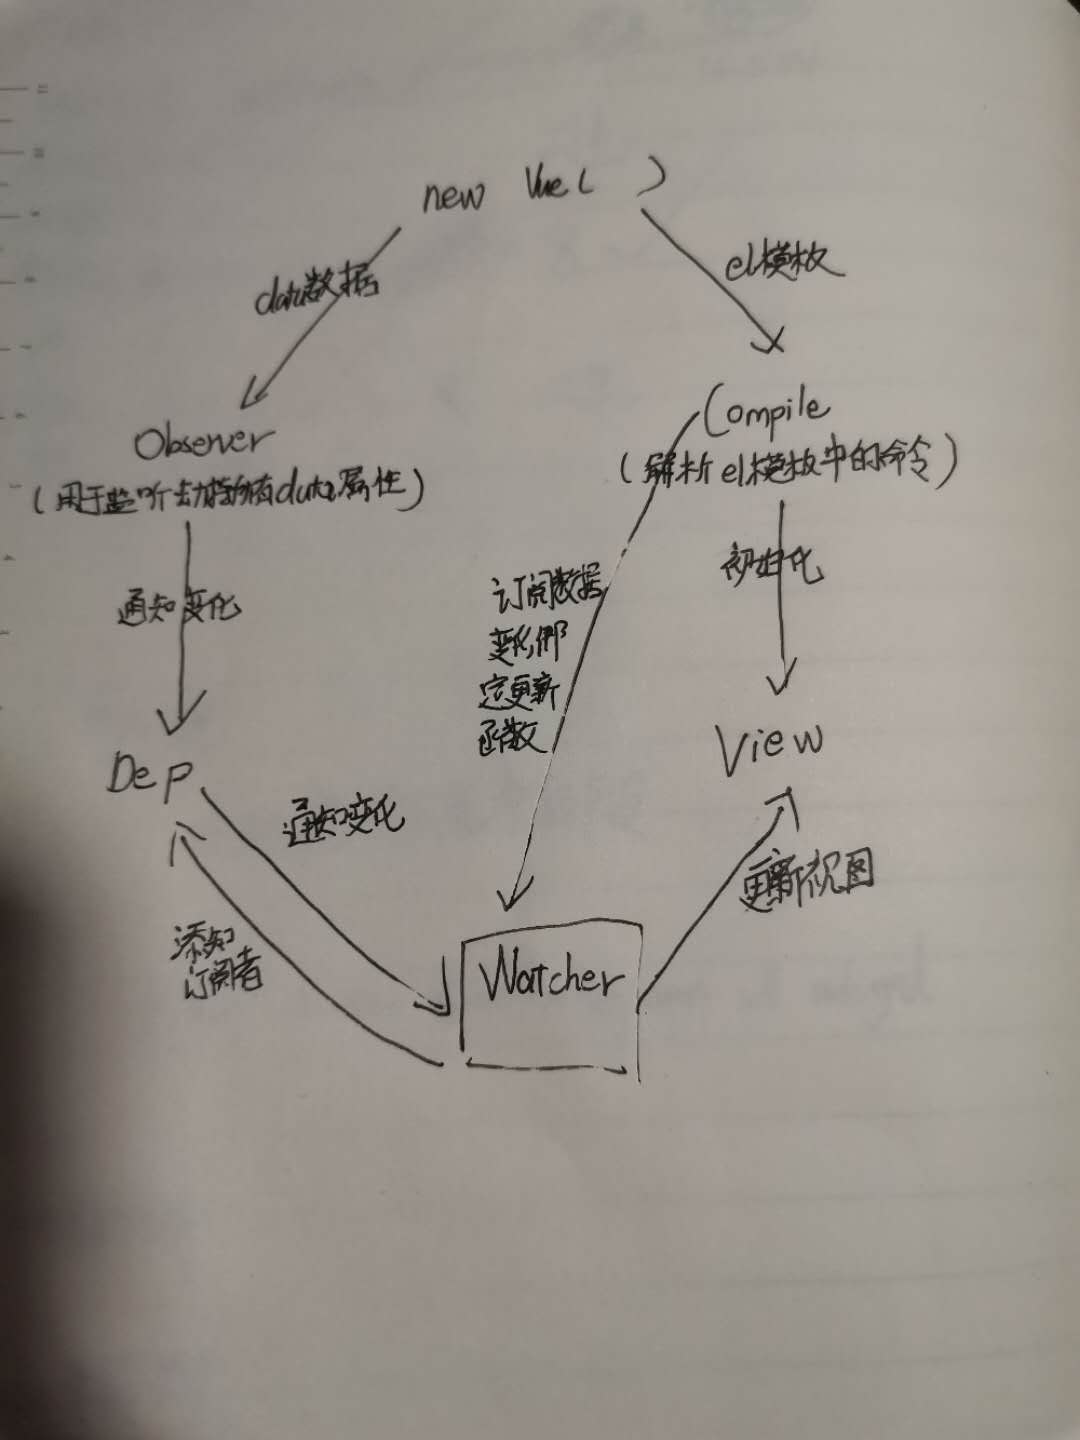 new Vue( )
data数据
el模板
Observer
(用于监听劫持所有data属性)
Compile
(解析el模板中的命令)
通知变化
订阅数据
变化,绑
定更新
函数
初始化
Dep
View
通知变化
添知
订阅者
更新视图
Watcher